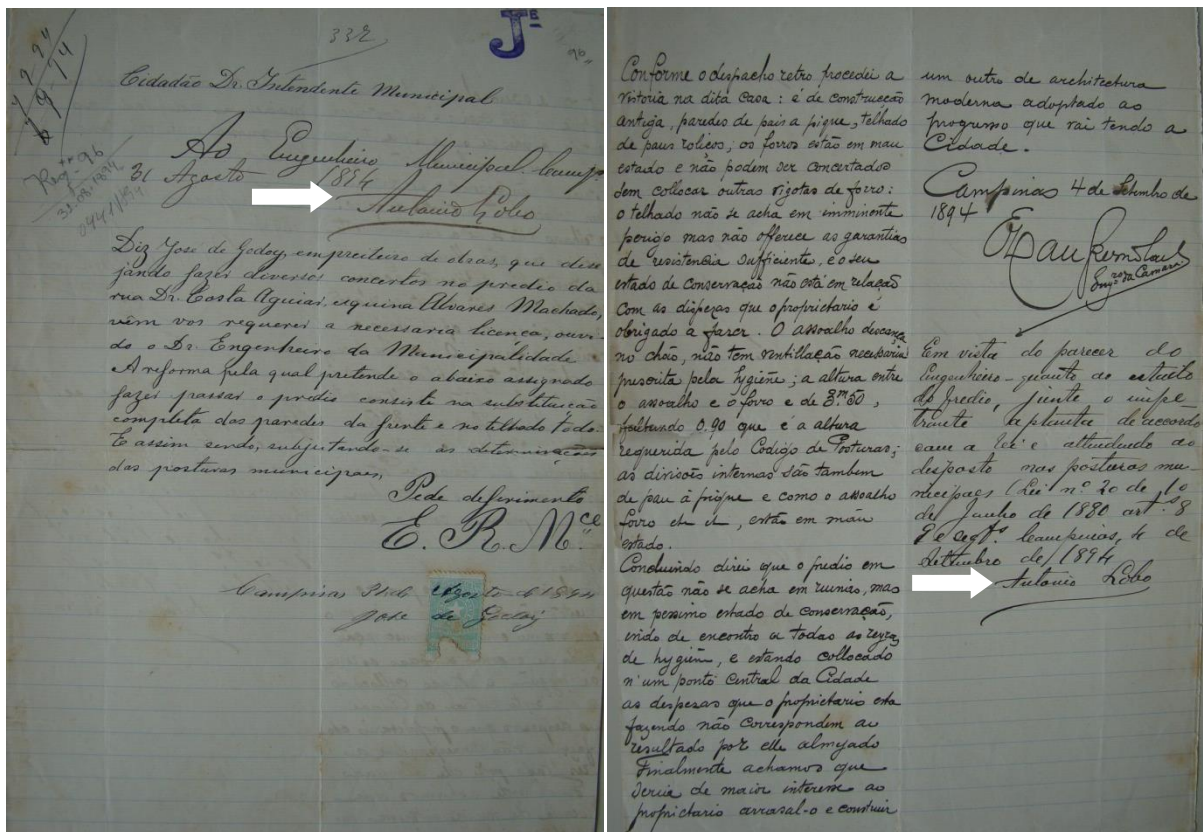 332
J.e
Cidadão Dr. Intendente Municipal
Ao Engenheiro Municipal. Camp.
31 Agosto 1894
Antonio Lobo
Reg. 96
31.08.1894
Diz José de Godoy, empreiteiro de obras, que dese
jando fazer diversos concertos no predio da
rua Dr. Costa Aguiar, esquina Alvares Machado,
vêm vos requerer a necessaria licença, ouvi-
do o Dr. Engenheiro da Municipalidade.
A reforma pela qual pretende o abaixo assignado
fazer passar o predio consiste na substituição
completa das paredes da frente e no telhado todo.
E assim sendo, subjeitando-se as determinações
das posturas municipaes,
Pede deferimento
E. R. M.ce
Campinas 31 de Agosto de 1894
José de Godoy
Conforme o despacho retro procedei a
vistoria na dita casa: é de construcção
antiga, paredes de pais a pique, telhado
de paus rolicos, os forros estão em mau
estado e não podem ser concertados
sem collocar outras vigotas de forro:
o telhado não se acha em imminente
perigo mas não offerece as garantias
de resistencia sufficiente, e o seu
estado de conservação não está em relação
com as dispezas que o proprietario é
obrigado a fazer. O assoalho descança
no chão, não tem ventillação necessaria
prescrita pela hygiene; a altura entre
o assoalho e o forro e de 3m50,
faltando 0.90 que é a altura
requerida pelo Codigo de Posturas;
as divisões internas são tambem
de pau à pique e como o assoalho
forro etc, estão em máu
estado.
Concluindo direi que o predio em
questão não se acha em ruinas, mas
em pessimo estado de conservação,
indo de encontro a todas as regras
de hygiene, e estando collocado
n'um ponto Central da Cidade
as despezas que o proprietario está
fazendo não correspondem au
resultado por elle almejado
Finalmente achamos que
seria de maior interesse ao
proprietario arrasal-o e construir
um outro de architectura
moderna adoptado ao
progresso que vai tendo a
Cidade.
Campinas 4 de Setembro de
1894
Engro da Camara
Em vista do parecer do
Engenheiro quanto ao estado
do predio, junte o impe
trante a planta de accordo
com a lei e attendendo ao
disposto nas posturas mu
nicipaes (Lei nº 20 de 10
de Junho de 1880 art.s 8
9 e segts. Campinas, 4 de
Setembro de 1894
Antonio Lobo